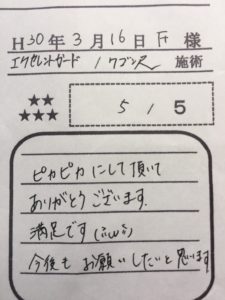 H30年3月16日 F 様
エクセレントガード / ワゴンR 施術
★★
★★★
5 / 5
ピカピカにして頂いて
ありがとうございます。
満足です(^ω^)
今後もお願いしたいと思います